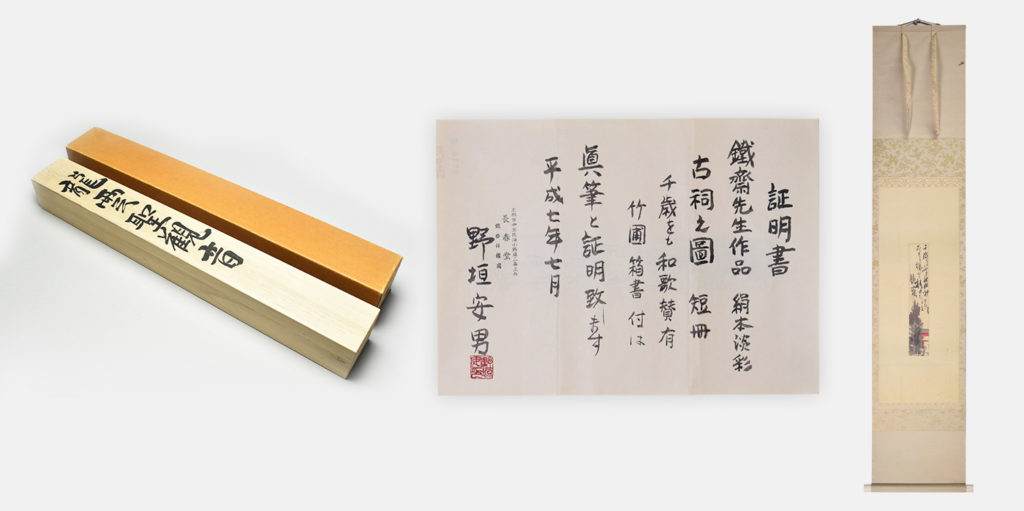 龍雲聖觀音
証明書
鐵齋先生作品 絹本淡彩
古祠之圖 短冊
千歳をも和歌賛有
竹圃 箱書 付は
眞筆と証明致します
平成七年七月
長春堂
野垣安男